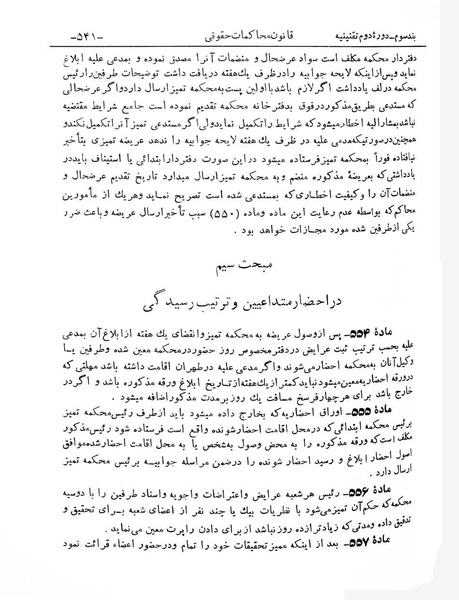 بند سوم ـ دورهٔ دوم تقنینیه
قانون محاکمات حقوقی
ـ ۵۴۱ ـ
دفتردار محکمه مکلف است سواد عرضحال و منضمات آنرا مصدق نموده و بمدعی علیه ابلاغ
نماید و پس از اینکه لایحه جوابیه را در ظرف یک هفته دریافت داشت توضیحات طرفین را رئیس
محکمه در لف یادداشت اگر لازم باشد با اولین پست به محکمه تمیز ارسال دارد و اگر عرضحال
که مستدعی بطریق مذکور در فوق به دفترخانه محکمه تقدیم نموده است جامع شرایط مقتضیه
نباشد بمشارالیه اخطار میشود که شرایط را تکمیل نماید ولی اگر مستدعی تمیز آنرا تکمیل نکند و
همچنین در صورتیکه مدعی علیه در ظرف یک هفته لایحه جوابیه را ندهد عریضه تمیزی بتأخیر
نیافتاده فوراً بمحکمه تمیز فرستاده میشود در این صورت دفتردار ابتدائی یا استیناف باید در
یادداشتی که بعریضهٔ مذکوره منضم و به محکمه تمیز ارسال میدارد تاریخ تقدیم عرضحال و
منضمات آن را و کیفیت اخطاری که بمستدعی شده است تصریح نماید و هریک از مأمورین
محاکم که بواسطه عدم رعایت این ماده و ماده (۵۵۰) سبب تأخیر ارسال عریضه و باعث ضرر
یکی از طرفین شده مورد مجازات خواهد بود .
مبحث سیم
در احضار متداعیین و ترتیب رسیدگی
مادهٔ ۵۵۴ـ پس از وصول عریضه به محکمه تمیز و انقضای یک هفته از ابلاغ آن بمدعی
علیه بحسب ترتیب ثبت عرایض در دفتر مخصوص روز حضور در محکمه معین شده و طرفین یا
وکیل آنان به محکمه احضار می‌شوند و اگر مدعی علیه در طهران اقامت داشته باشد مهلتی که
در ورقه احضاریه معین میشود نباید کمتر از یک هفته از تاریخ ابلاغ ورقه مذکوره باشد و اگر در
خارج باشد برای هر چهار فرسخ مسافت یک روز بر مدت مذکور اضافه میشود .
مادهٔ ۵۵۵ـ اوراق احضاریه که بخارج داده میشود باید از طرف رئیس محکمه تمیز
برئیس محکمه ابتدائی که در محل اقامت احضار شونده واقع است فرستاده شود رئیس مذکور
مکلف است که ورقه مذکوره را به محض وصول به شخص یا به محل اقامت احضار شده موافق
اصول احضار ابلاغ و رسید احضار شونده را در ضمن مراسله جوابیه برئیس محکمه تمیز
ارسال دارد .
مادهٔ ۵۵۶ـ رئیس هر شعبه عرایض و اعتراضات و اجوبه و اسناد طرفین را با دوسیه
محکمه که حکم آن تمیز میشود با نظریات بیک یا چند نفر از اعضای شعبه برای تحقیق و
تدقیق داده و مدتی که زیادتر از ده روز نباشد از برای دادن راپرت معین می‌نماید .
مادهٔ ۵۵۷ـ بعد از اینکه ممیز تحقیقات خود را تمام و در حضور اعضاء قرائت نمود